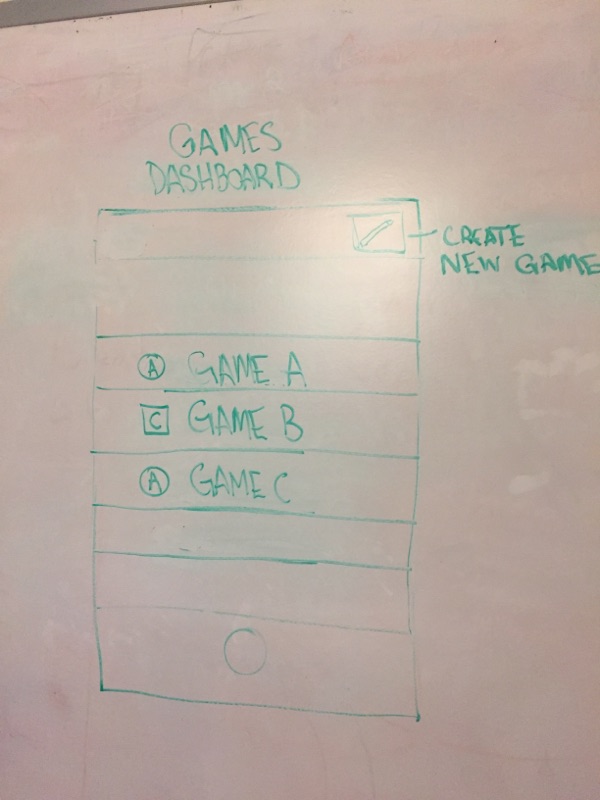 GAMES
DASHBOARD
CREATE
NEW GAME
A GAME A
C GAME B
A GAME C